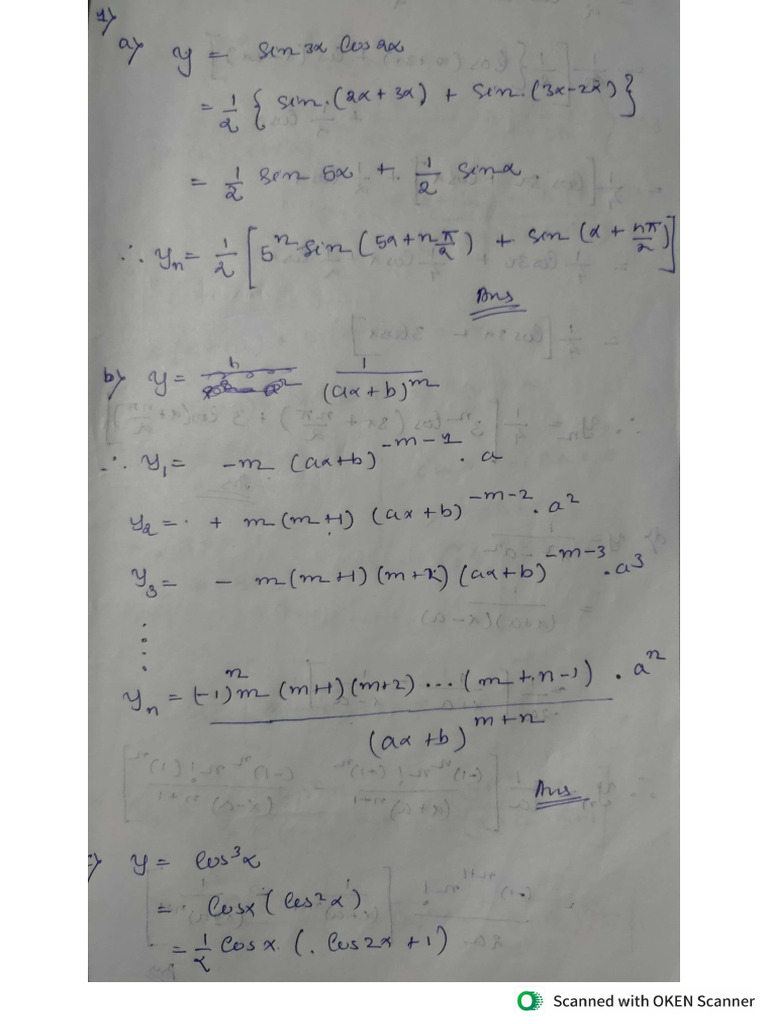 1)
a) y = sin 3x cos 2x
= 1/2 { sin (2x + 3x) + sin (3x - 2x) }
= 1/2 sin 5x + 1/2 sin x.
∴ yₙ = 1/2 [ 5ⁿ sin (5x + nπ/2) + sin (x + nπ/2) ]
Ans
b) y = 1/(ax + b)^m
∴ y₁ = -m (ax+b)^(-m-1) . a
y₂ = + m (m+1) (ax + b)^(-m-2) . a²
y₃ = - m (m+1) (m+2) (ax+b)^(-m-3) . a³
⋮
yₙ = (-1)ⁿ m (m+1) (m+2) ... (m + n - 1) . aⁿ / (ax + b)^(m+n)
Ans
c) y = cos³x
= cosx (cos²x)
= 1/2 cos x (cos 2x + 1)
Scanned with OKEN Scanner